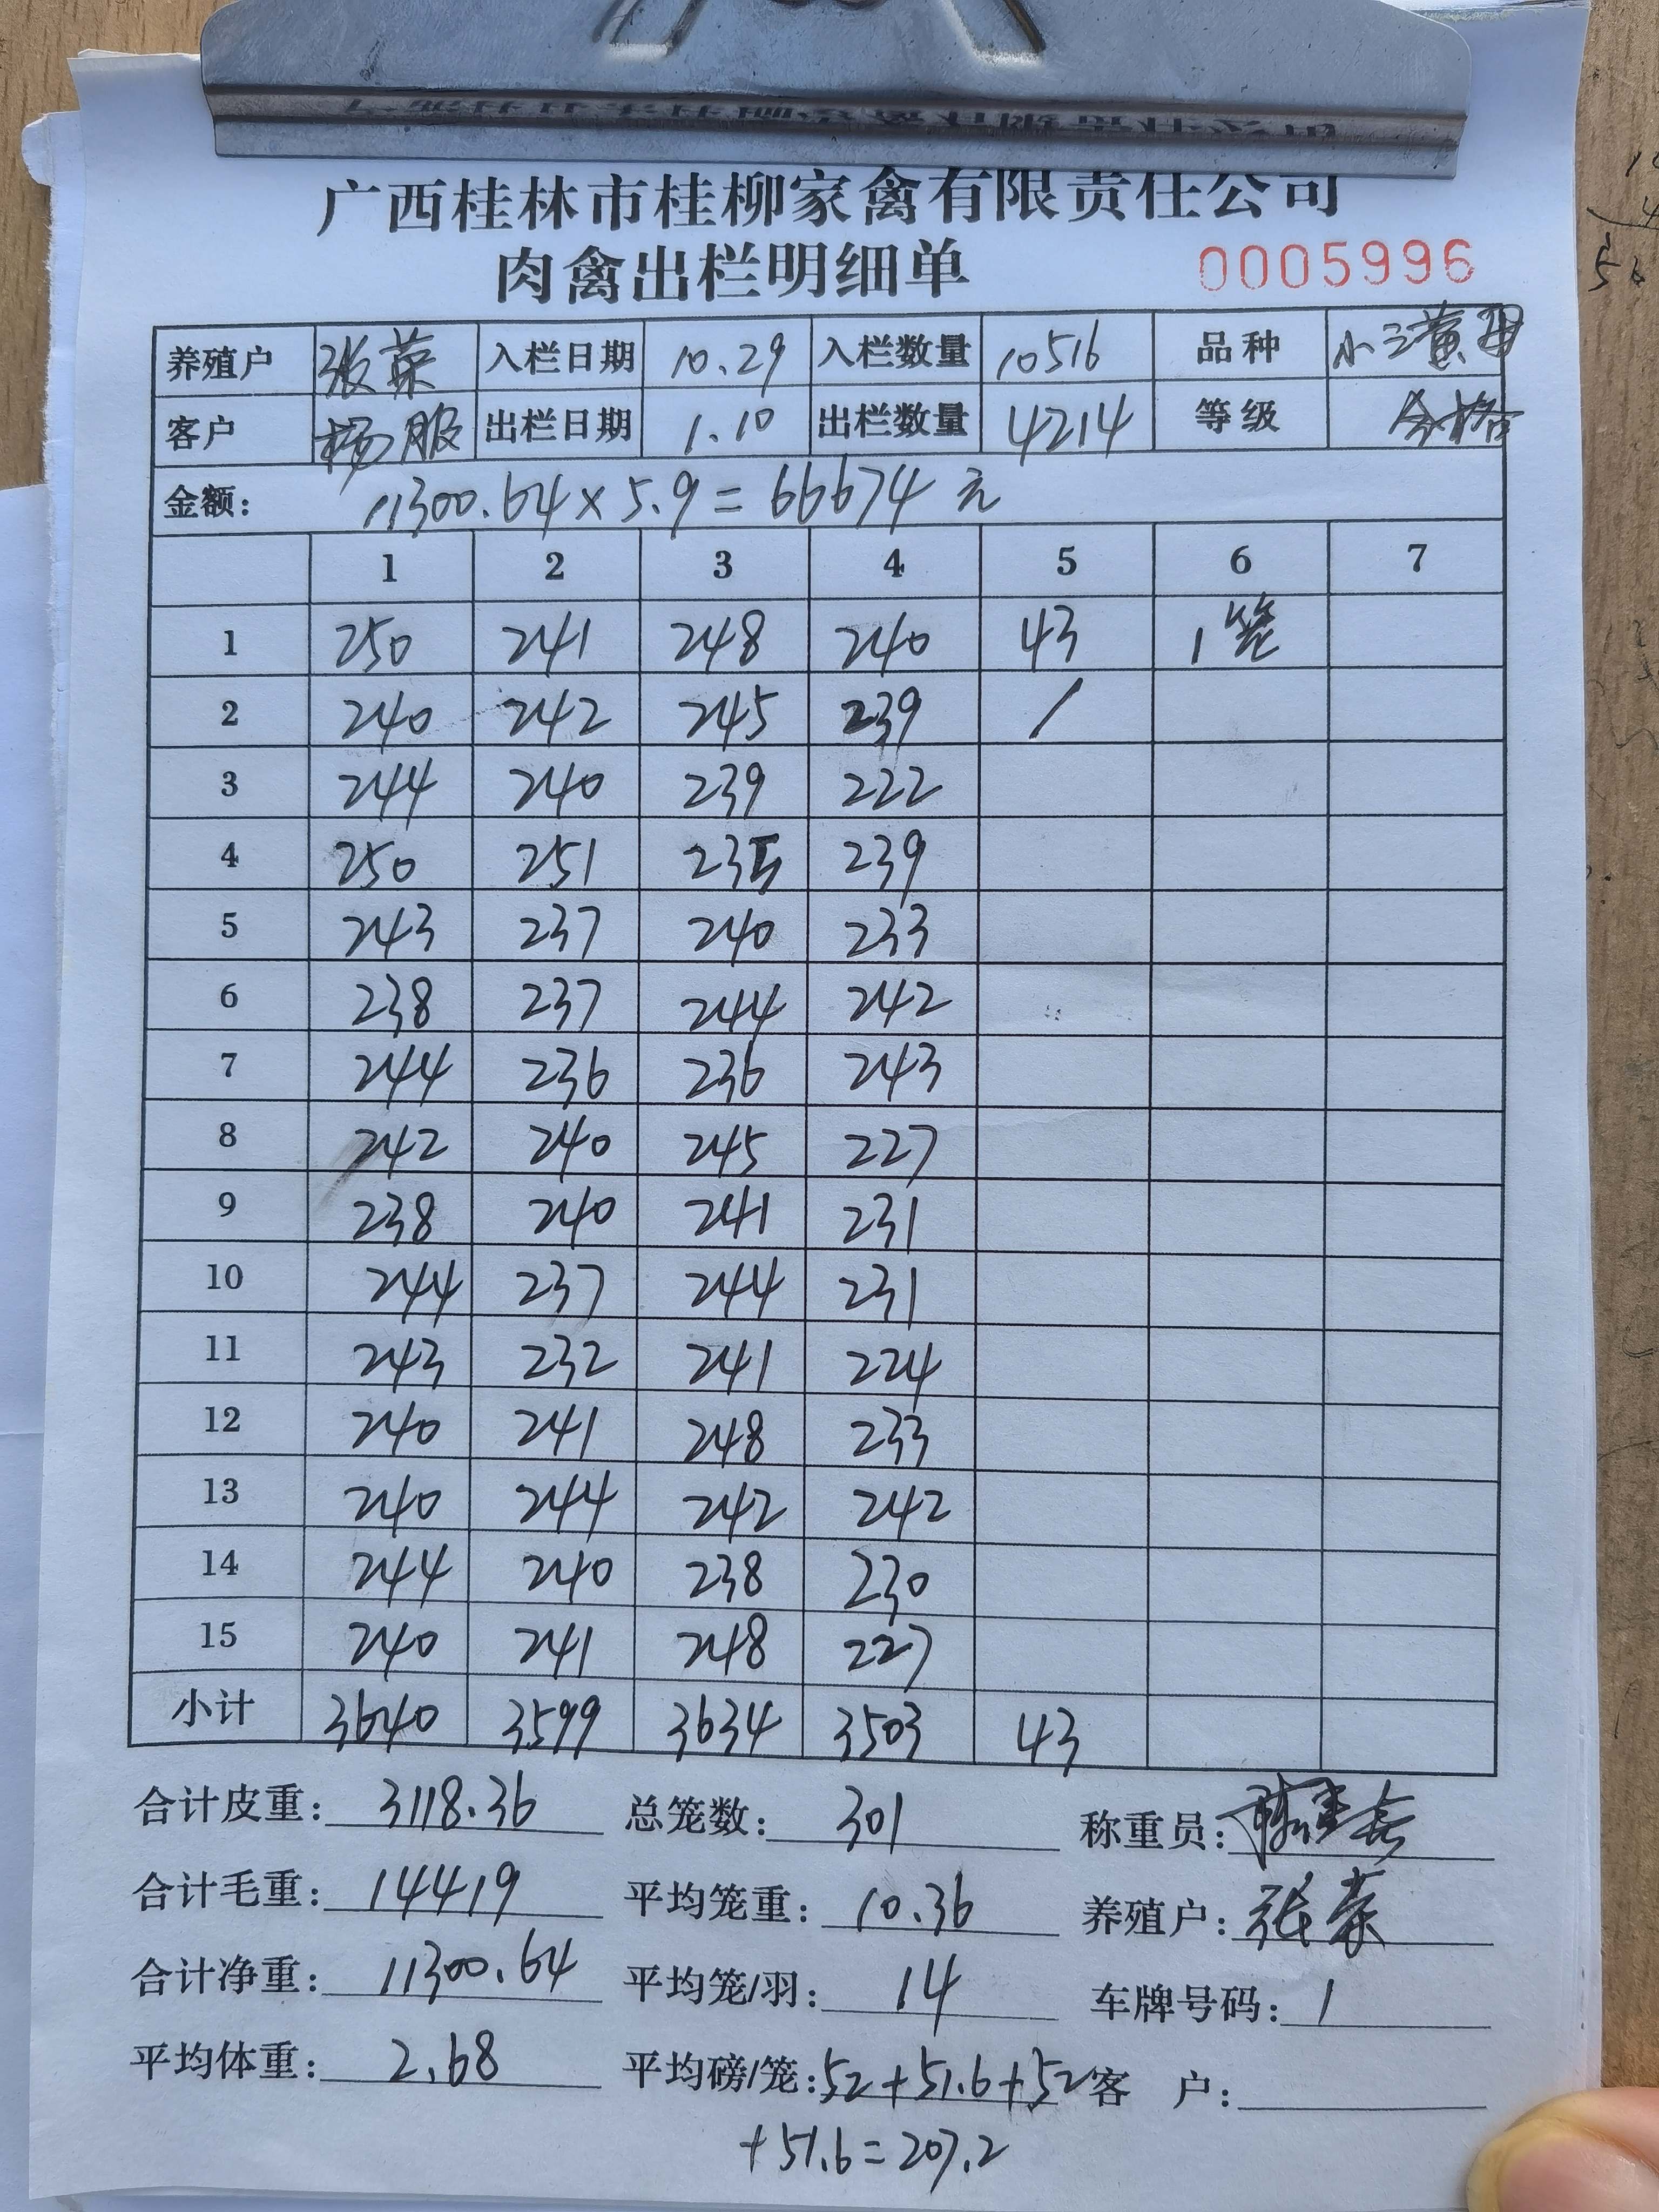 广西桂林市桂柳家禽有限责任公司
肉禽出栏明细单 0005996
养殖户 张荣 入栏日期 10.29 入栏数量 10516 品种 小三黄母
客户 杨服 出栏日期 1.10 出栏数量 4214 等级 合格
金额: 11300.64×5.9=66674元
1 2 3 4 5 6 7
1 250 241 248 240 43 1笼
2 240 242 245 239 /
3 244 240 239 222
4 250 251 235 239
5 243 237 240 233
6 238 237 244 242
7 244 236 236 243
8 242 240 245 227
9 238 240 241 231
10 244 237 244 231
11 243 232 241 224
12 240 241 248 233
13 240 244 242 242
14 244 240 238 230
15 240 241 248 227
小计 3640 3599 3634 3503 43
合计皮重: 3118.36 总笼数: 301 称重员:
合计毛重: 14419 平均笼重: 10.36 养殖户: 张荣
合计净重: 11300.64 平均笼/羽: 14 车牌号码: 1
平均体重: 2.68 平均磅/笼: 52+51.6+52 客 户:
+51.6=207.2